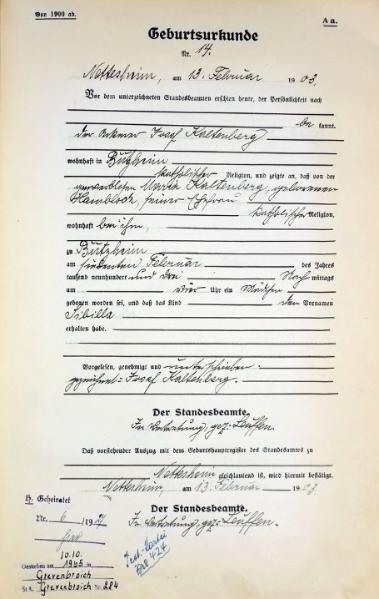 Von 1900 ab.
A a.
Geburtsurkunde
Nr. 14.
Nettesheim, am 13. Februar 1903.
Vor dem unterzeichneten Standesbeamten erschien heute, der Persönlichkeit nach
be kannt,
der Ackerer Josef Kaltenberg
wohnhaft in Butzheim
katholischer Religion, und zeigte an, daß von der
Maria Kaltenberg, geborenen
Hambloch, seiner Ehefrau
katholischer Religion,
wohnhaft bei ihm,
zu Butzheim
am siebenten Februar des Jahres
tausend neunhundert und drei Nach mittags
um vier Uhr ein Mädchen
geboren worden sei, und daß das Kind den Vornamen
Sibilla
erhalten habe.
Vorgelesen, genehmigt und unterschrieben:
gezeichnet: Josef Kaltenberg.
Der Standesbeamte.
In Vertretung, gez. Leuffen.
Daß vorstehender Auszug mit dem Geburtshauptregister des Standesamts zu
Nettesheim gleichlautend ist, wird hiermit bestätigt.
Nettesheim, am 13. Februar 1903.
Der Standesbeamte.
In Vertretung, gez. Leuffen.
H. Geheiratet
Nr. 6
10.10.
Gestorben am 1965 in
Grevenbroich
St.A. Grevenbroich Nr. 224